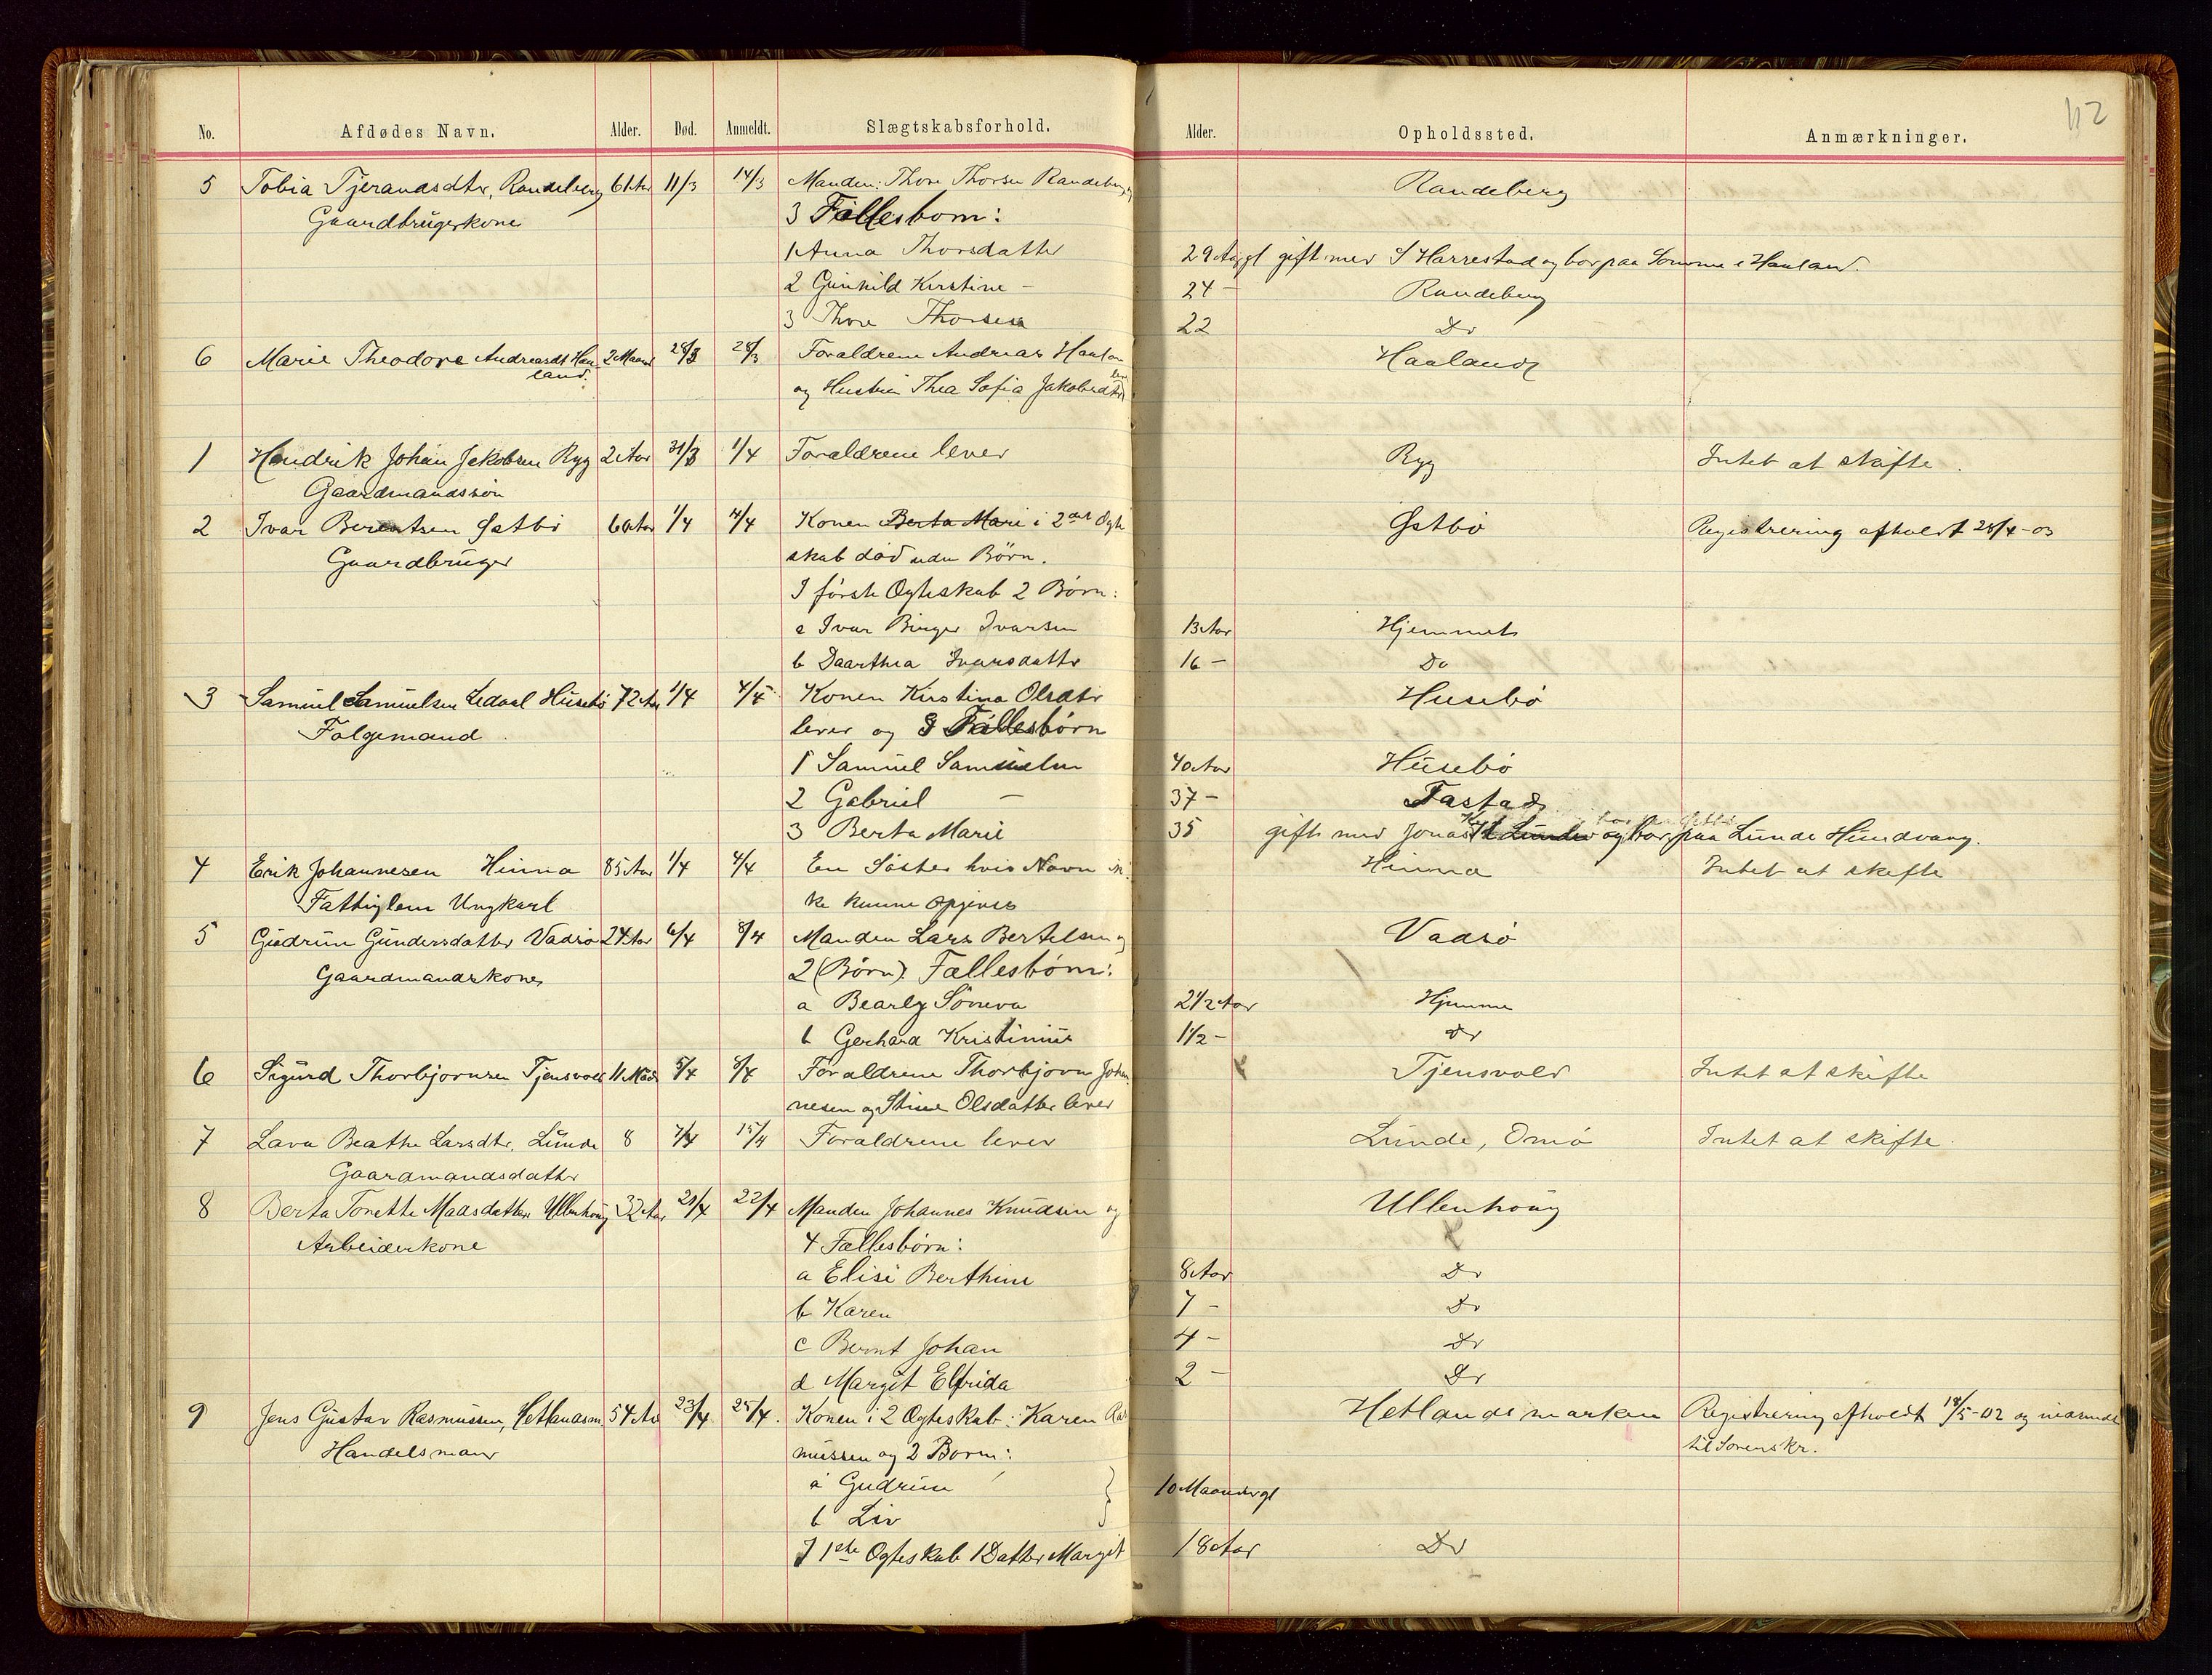 No. Afdødes Navn. Alder. Død. Anmeldt. Slægtskabsforhold. Alder. Opholdssted. Anmærkninger.
5 Tobia Tjerandsdtr, Randeberg 61 Aar 11/3 14/3 Manden: Thore Thorsen Randeberg Randeberg
Gaardbrugerkone 3 Fællesborn:
1 Anna Thorsdatter 29 Aar gl gift med S Harrestad og bor paa Somme i Haaland.
2 Gunhild Kirstine – 24 – Randeberg
3 Thore Thorsen 22 Do
6 Marie Theodore Andreasdt Haa- 2 Maaned 28/3 Forældrene Andreas Haaland Haaland
land. og Hustru Thea Sofia Jakobsdtr lever
1 Hendrik Johan Jakobsen Ryg 2 Aar 31/3 1/4 Forældrene lever Ryg Intet at skifte.
Gaardmandssøn
2 Ivar Berentsen Østbø 60 Aar 1/4 4/4 Konen Berta Mari i 2det Ægte Østbø Registrering afholdt 28/4-03
Gaardbruger skab død uden Børn.
I første Ægteskab 2 Børn:
a Ivar Birger Ivarsen 13 Aar Hjemmet
b Daarthea Ivarsdatter 16 – Do
3 Samuel Samuelsen Ledaal Husebø 72 Aar 1/4 4/4 Konen Kirstina Olsdtr Husebø
Folgemand lever og 3 Fællesbørn
1 Samuel Samuelsen 40 Aar Husebø
2 Gabriel – 37 – Tastad
3 Berta Marie 35 gift med Jonas Lunde og bor paa Lunde Hundvaag.
4 Erik Johannesen Hinna 85 Aar 1/4 4/4 En Søster hvis Navn ik- Hinna Intet at skifte
Fattiglem Ungkarl ke kunne opgives
5 Gudrun Gundersdatter Vadsø 24 Aar 6/4 8/4 Manden Lars Bertelsen og Vadsø
Gaardmandskone 2 (Børn). Fællesbørn:
a Bearly Søneva 2 1/2 Aar Hjemme
b Gerhard Kristinius 1 1/2 – Do
6 Sigurd Thorbjørnsen Tjensvold 11 Mdr 5/4 8/4 Forældrene Thorbjørn Johan- Tjensvold Intet at skifte
nesen og Stine Olsdatter lever
7 Lava Beathe Larsdtr. Lunde 8 7/4 15/4 Forældrene lever Lunde, Omø Intet at skifte.
Gaardmandsdatter
8 Berta Tonette Madsdatter Ullenhoug 32 Aar 21/4 22/4 Manden Johannes Knudsen og Ullenhoug
Arbeiderkone 4 Fællesbørn:
a Elise Berthine 8 Aar Do
b Karen 7 – Do
c Bernt Johan 4 – Do
d Margit Elfrida 2 – Do
9 Jens Gustav Rasmussen, Hetlandsm. 54 Aar 23/4 25/4. Konen i 2 Ægteskab: Karen Ras Hetlandsmarken Registrering afholdt 18/5-02 og indsendt
Handelsmand mussen og 2 Børn: til Sorenskr.
a Gudrun } 10 Maaneder gl
b Liv
I 1ste Ægteskab 1 Datter Margit 18 Aar Do